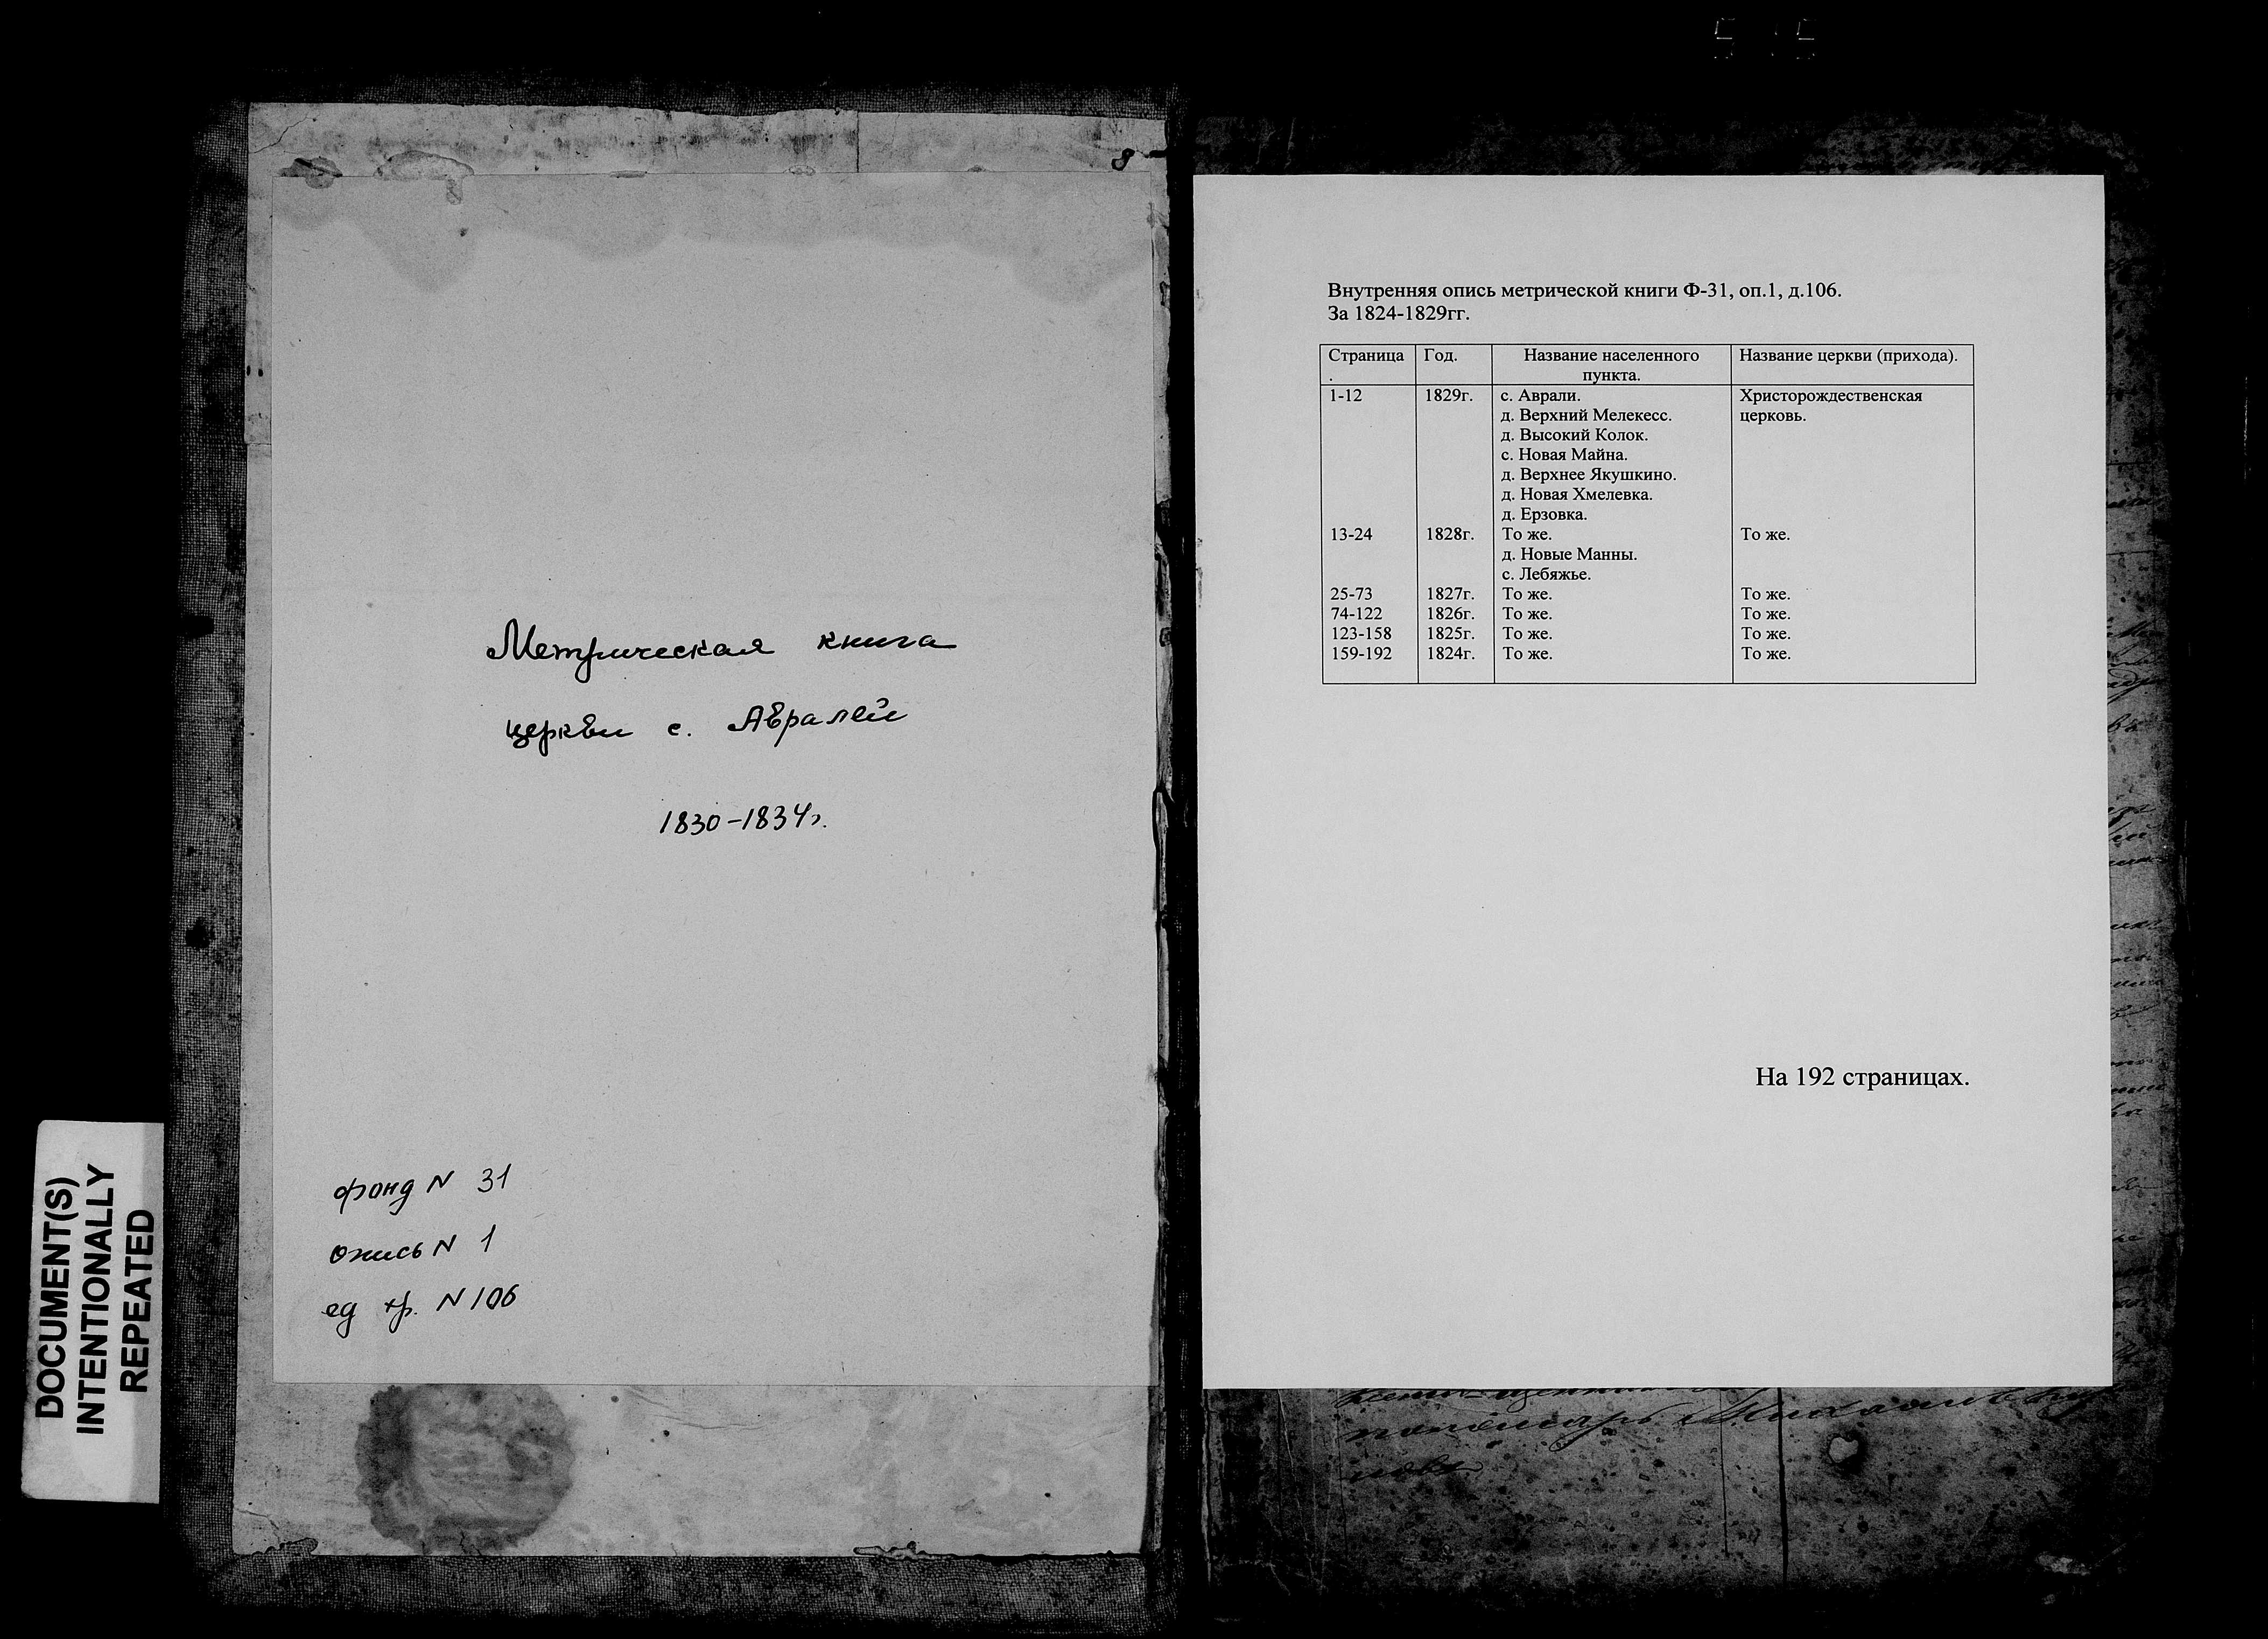 8
Метрическая книга
церкви с. Авралей
1830-1834г.
фонд N 31
опись N 1
ед хр. N 106
DOCUMENT(S)
INTENTIONALLY
REPEATED
Внутренняя опись метрической книги Ф-31, оп.1, д.106.
За 1824-1829гг.
Страница Год. Название населенного Название церкви (прихода).
. пункта.
1-12 1829г. с. Аврали. Христорождественская
д. Верхний Мелекесс. церковь.
д. Высокий Колок.
с. Новая Майна.
д. Верхнее Якушкино.
д. Новая Хмелевка.
д. Ерзовка.
13-24 1828г. То же. То же.
д. Новые Манны.
с. Лебяжье.
25-73 1827г. То же. То же.
74-122 1826г. То же. То же.
123-158 1825г. То же. То же.
159-192 1824г. То же. То же.
На 192 страницах.